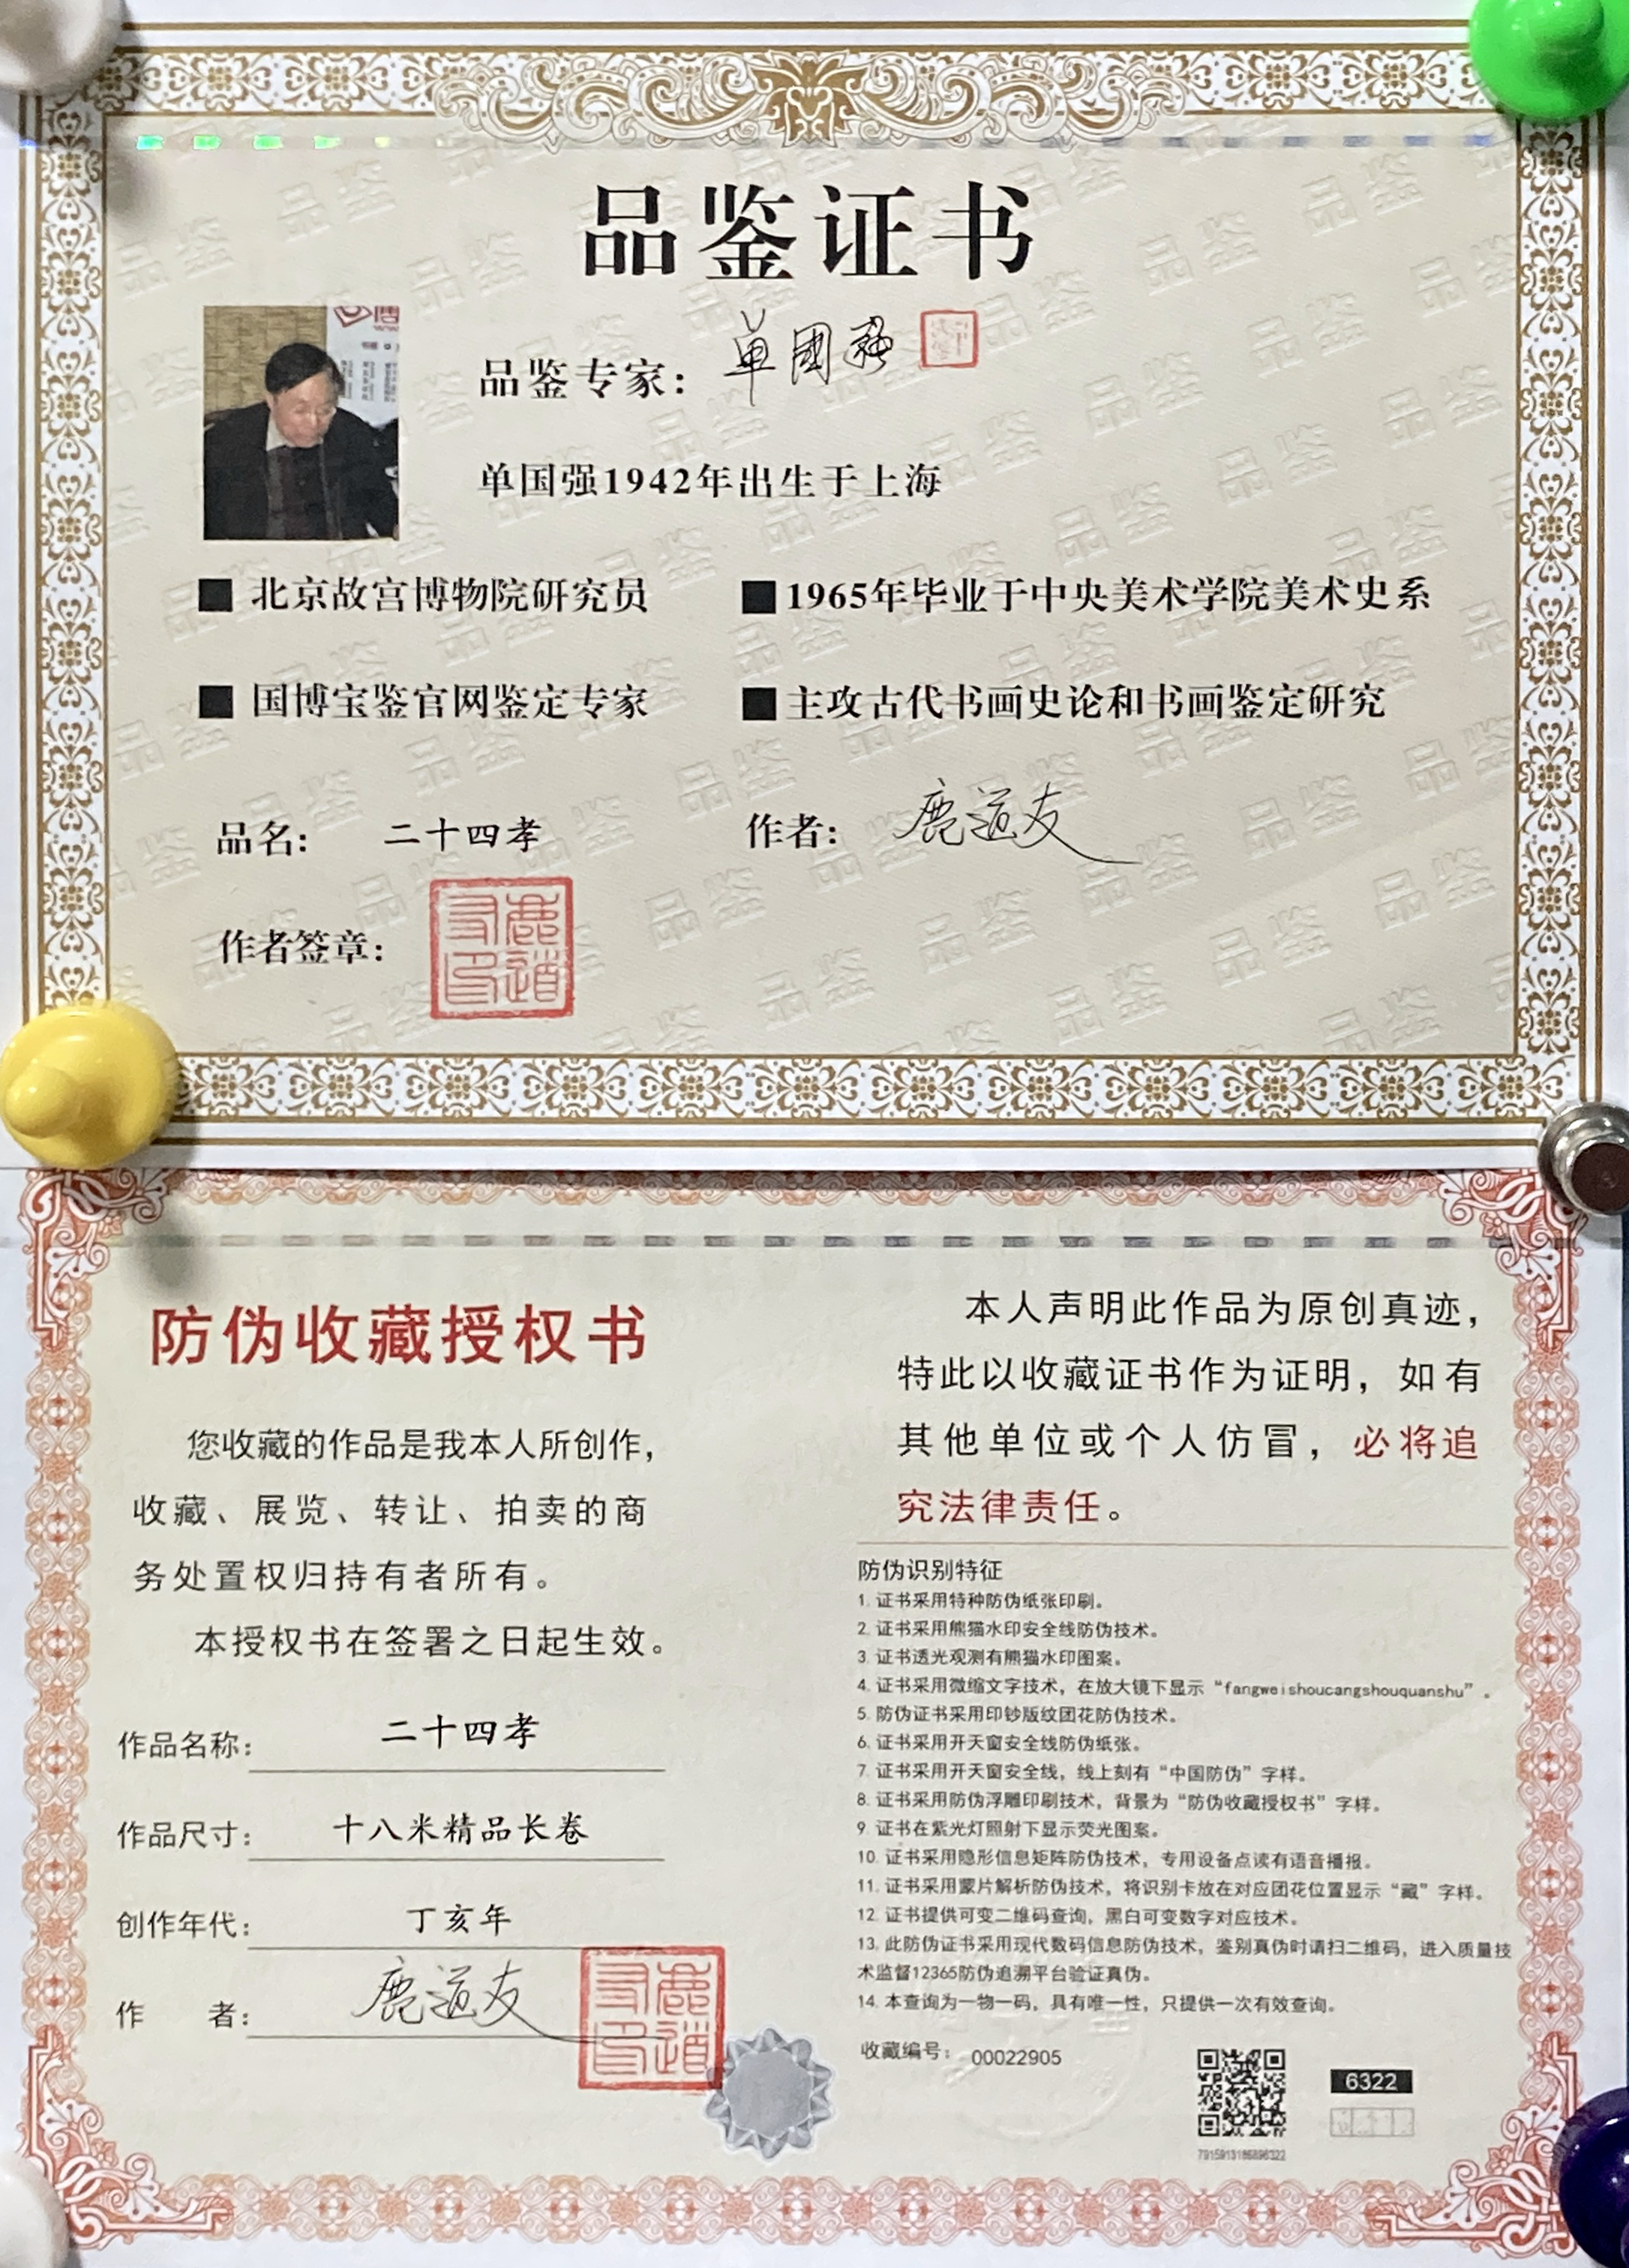 品鉴证书
品鉴专家：單國強
单国强1942年出生于上海
■ 北京故宫博物院研究员
■ 1965年毕业于中央美术学院美术史系
■ 国博宝鉴官网鉴定专家
■ 主攻古代书画史论和书画鉴定研究
品名： 二十四孝
作者： 鹿道友
作者签章：
鹿道友印
防伪收藏授权书
您收藏的作品是我本人所创作，
收藏、展览、转让、拍卖的商
务处置权归持有者所有。
本授权书在签署之日起生效。
作品名称： 二十四孝
作品尺寸： 十八米精品长卷
创作年代： 丁亥年
作 者： 鹿道友
鹿道友印
本人声明此作品为原创真迹，
特此以收藏证书作为证明，如有
其他单位或个人仿冒，必将追
究法律责任。
防伪识别特征
1. 证书采用特种防伪纸张印刷。
2. 证书采用熊猫水印安全线防伪技术。
3. 证书透光观测有熊猫水印图案。
4. 证书采用微缩文字技术，在放大镜下显示“fangweishoucangshouquanshu”。
5. 防伪证书采用印钞版纹团花防伪技术。
6. 证书采用开天窗安全线防伪纸张。
7. 证书采用开天窗安全线，线上刻有“中国防伪”字样。
8. 证书采用防伪浮雕印刷技术，背景为“防伪收藏授权书”字样。
9. 证书在紫光灯照射下显示荧光图案。
10. 证书采用隐形信息矩阵防伪技术，专用设备点读有语音播报。
11. 证书采用蒙片解析防伪技术，将识别卡放在对应团花位置显示“藏”字样。
12. 证书提供可变二维码查询，黑白可变数字对应技术。
13. 此防伪证书采用现代数码信息防伪技术，鉴别真伪时请扫二维码，进入质量技
术监督12365防伪追溯平台验证真伪。
14. 本查询为一物一码，具有唯一性，只提供一次有效查询。
收藏编号： 00022905
6322